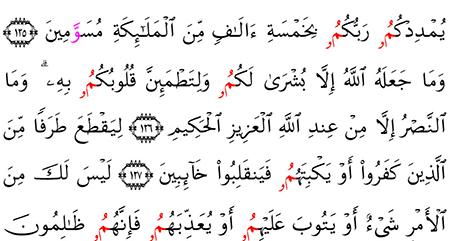 يُمْدِدْكُمُۥ رَبُّكُمُۥ بِخَمْسَةِ ءَالَٰفٍ مِّنَ ٱلْمَلَٰٓئِكَةِ مُسَوَّمِينَ ١٢٥
وَمَا جَعَلَهُ ٱللَّهُ إِلَّا بُشْرَىٰ لَكُمُۥ وَلِتَطْمَئِنَّ قُلُوبُكُمُۥ بِهِۦۗ وَمَا
ٱلنَّصْرُ إِلَّا مِنْ عِندِ ٱللَّهِ ٱلْعَزِيزِ ٱلْحَكِيمِ ١٢٦ لِيَقْطَعَ طَرَفًا مِّنَ
ٱلَّذِينَ كَفَرُوٓا۟ أَوْ يَكْبِتَهُمُۥ فَيَنقَلِبُوا۟ خَآئِبِينَ ١٢٧ لَيْسَ لَكَ مِنَ
ٱلْأَمْرِ شَىْءٌ أَوْ يَتُوبَ عَلَيْهِمُۥ أَوْ يُعَذِّبَهُمُۥ فَإِنَّهُمُۥ ظَٰلِمُونَ